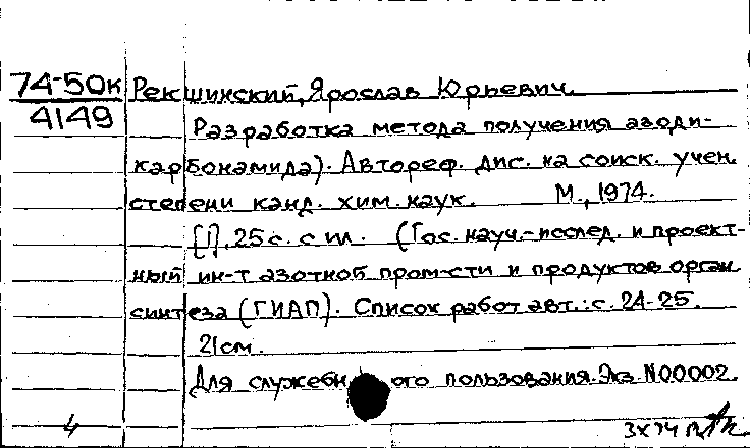 74-50к Рекшинский, Ярослав Юрьевич
4149
Разработка метода получения азоди-
карбонамида). Автореф. дис. на соиск. учен.
степени канд. хим. наук. М., 1974.
[1], 25 с. с ил. (Гос. науч.-исслед. и проект-
ный ин-т азотной пром-сти и продуктов орган.
синтеза (ГИАП). Список работ авт.: с. 24-25.
21 см.
Для служебного пользования. Экз. N00002.
4